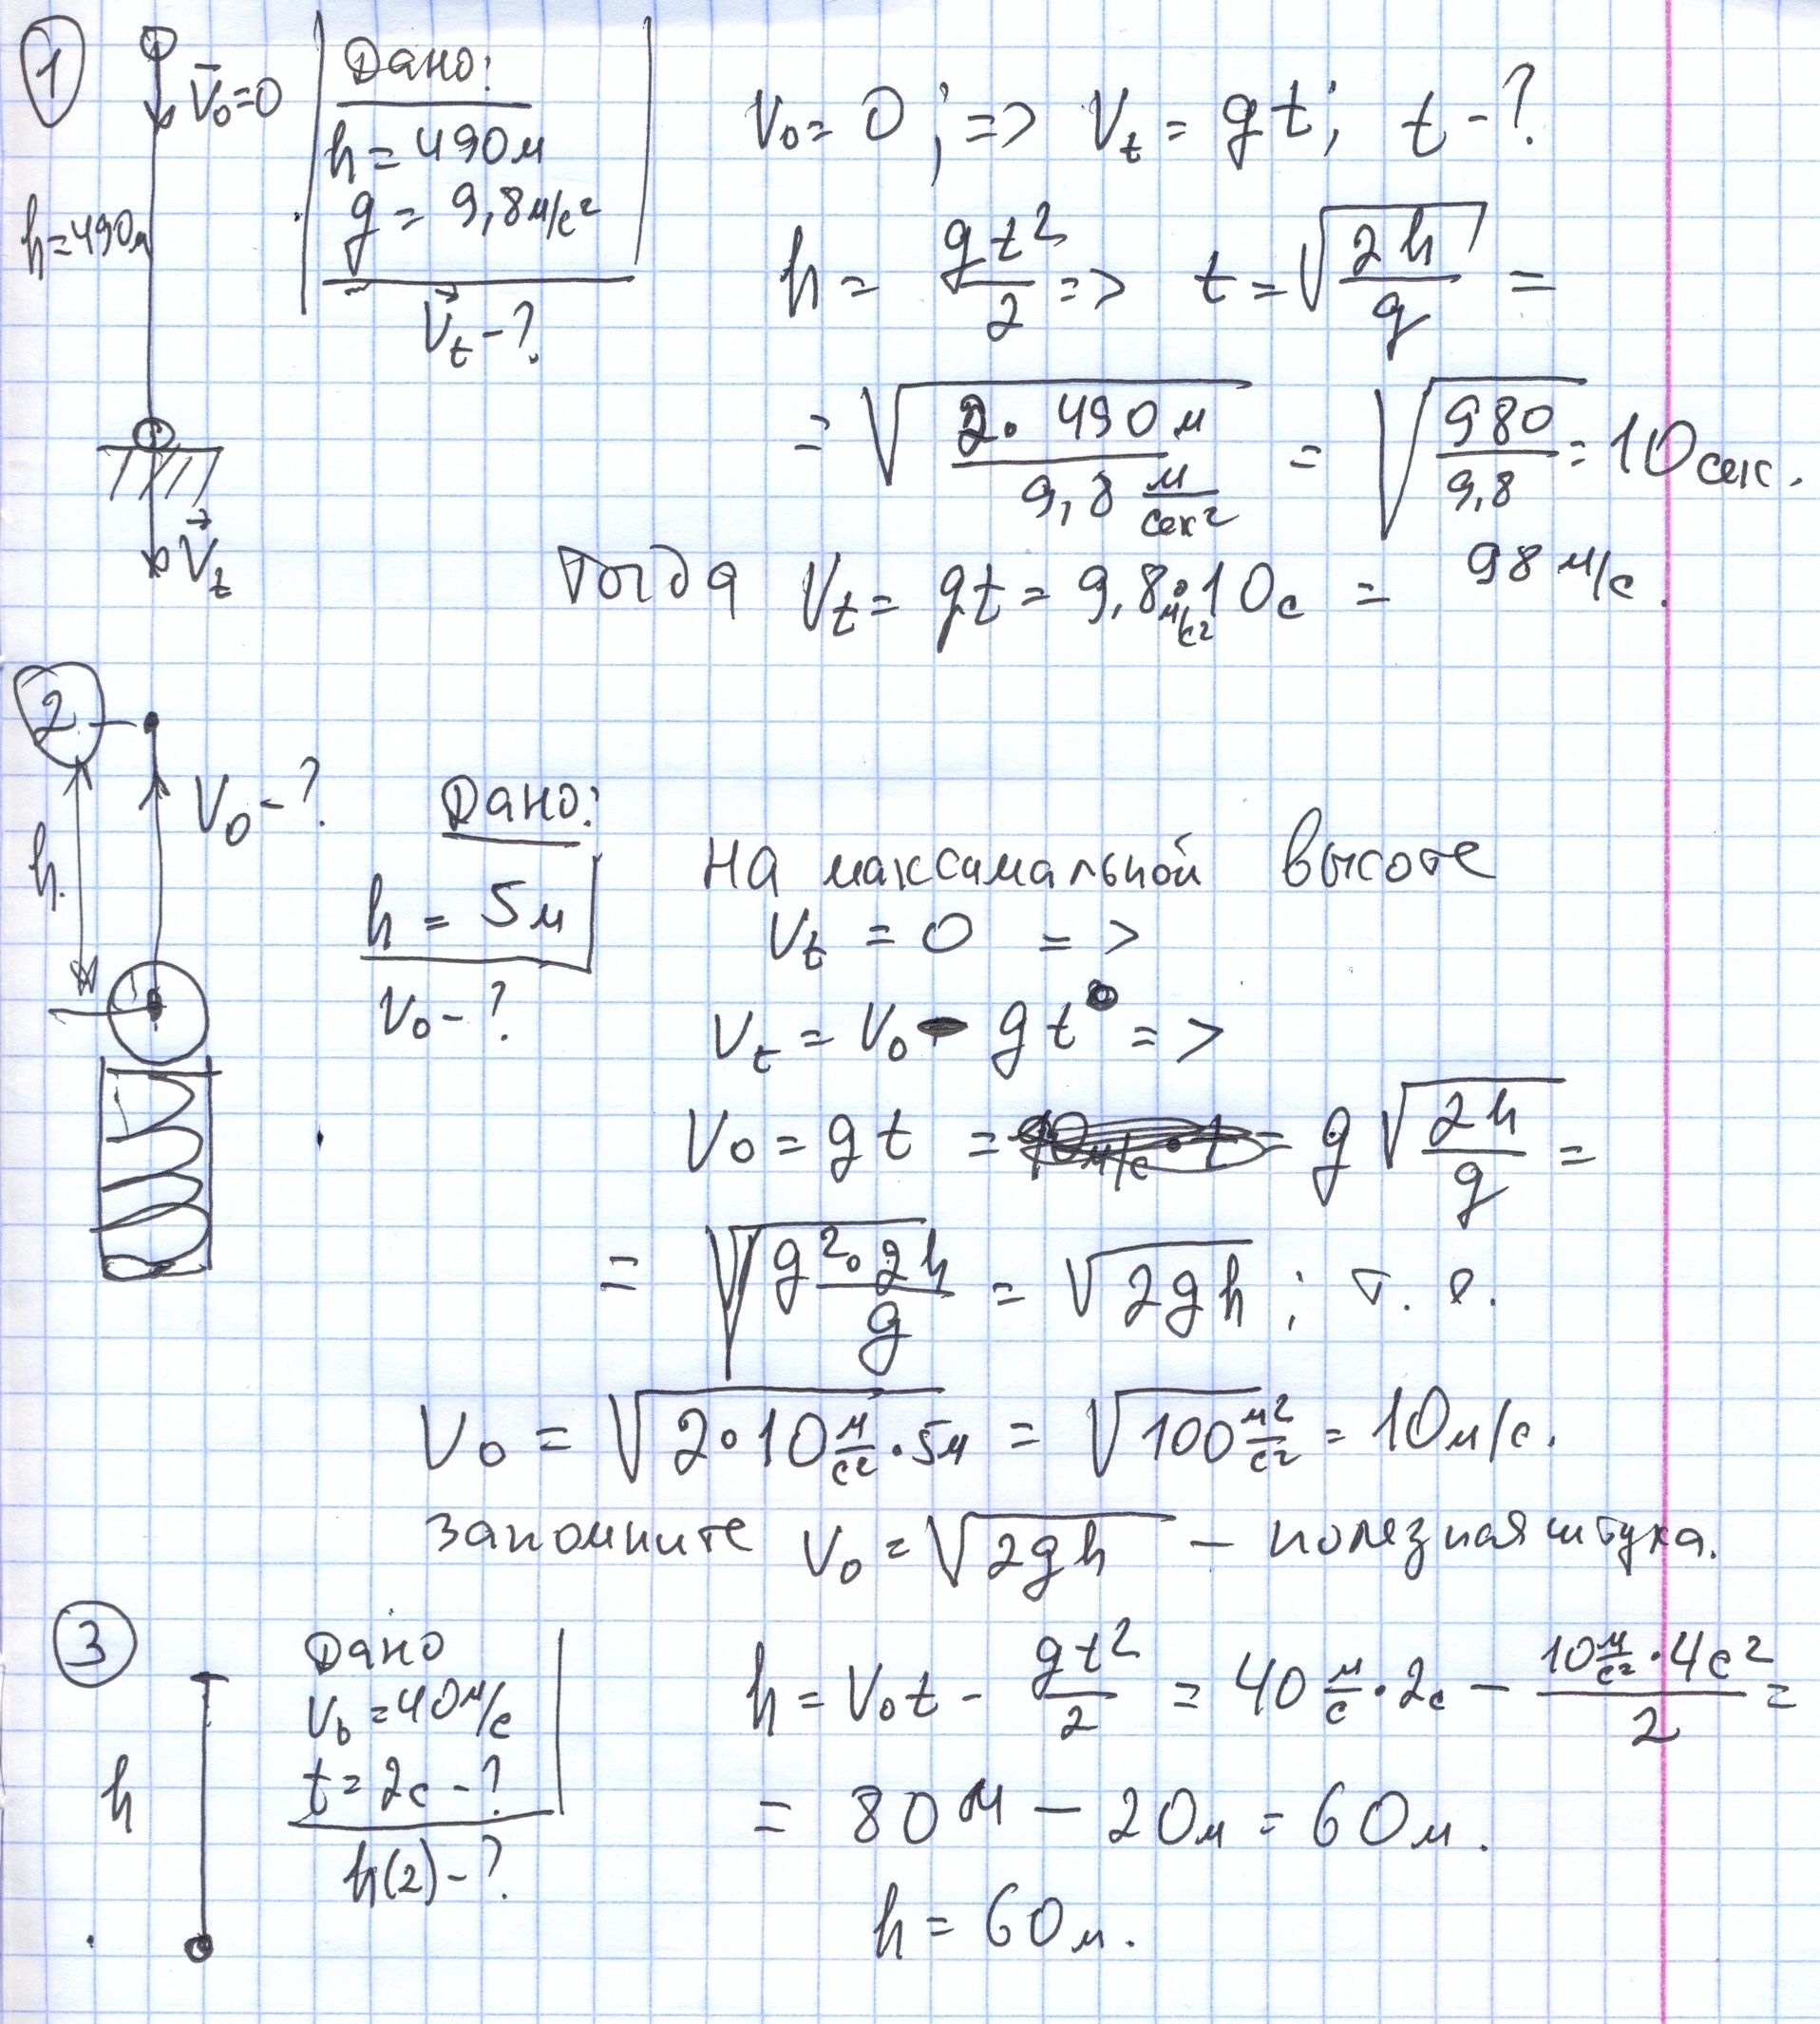 1
V₀=0
Дано:
h=490м
g = 9,8 м/с²
Vₜ-?
h=490м
Vₜ
V₀=0; => Vₜ = gt; t-?
h = gt²/2 => t=√(2h/g) =
= √(2·490м/9,8 м/сек²) = √(980/9,8) = 10 сек.
Тогда Vₜ = gt = 9,8 м/с²·10с = 98 м/с.
2
V₀-?
h.
Дано:
h = 5м
V₀-?
На максимальной высоте
Vₜ = 0 =>
Vₜ = V₀ - gt =>
V₀ = gt = g√(2h/g) =
= √(g²·2h/g) = √2gh; т. е.
V₀ = √(2·10 м/с²·5м) = √(100 м²/с²) = 10м/с.
Запомните V₀=√2gh - полезная штука.
3
h
Дано
V₀=40м/с
t=2с-?
h(2)-?
h=V₀t - gt²/2 = 40 м/с·2с - 10 м/с²·4с²/2 =
= 80м - 20м = 60м.
h = 60м.